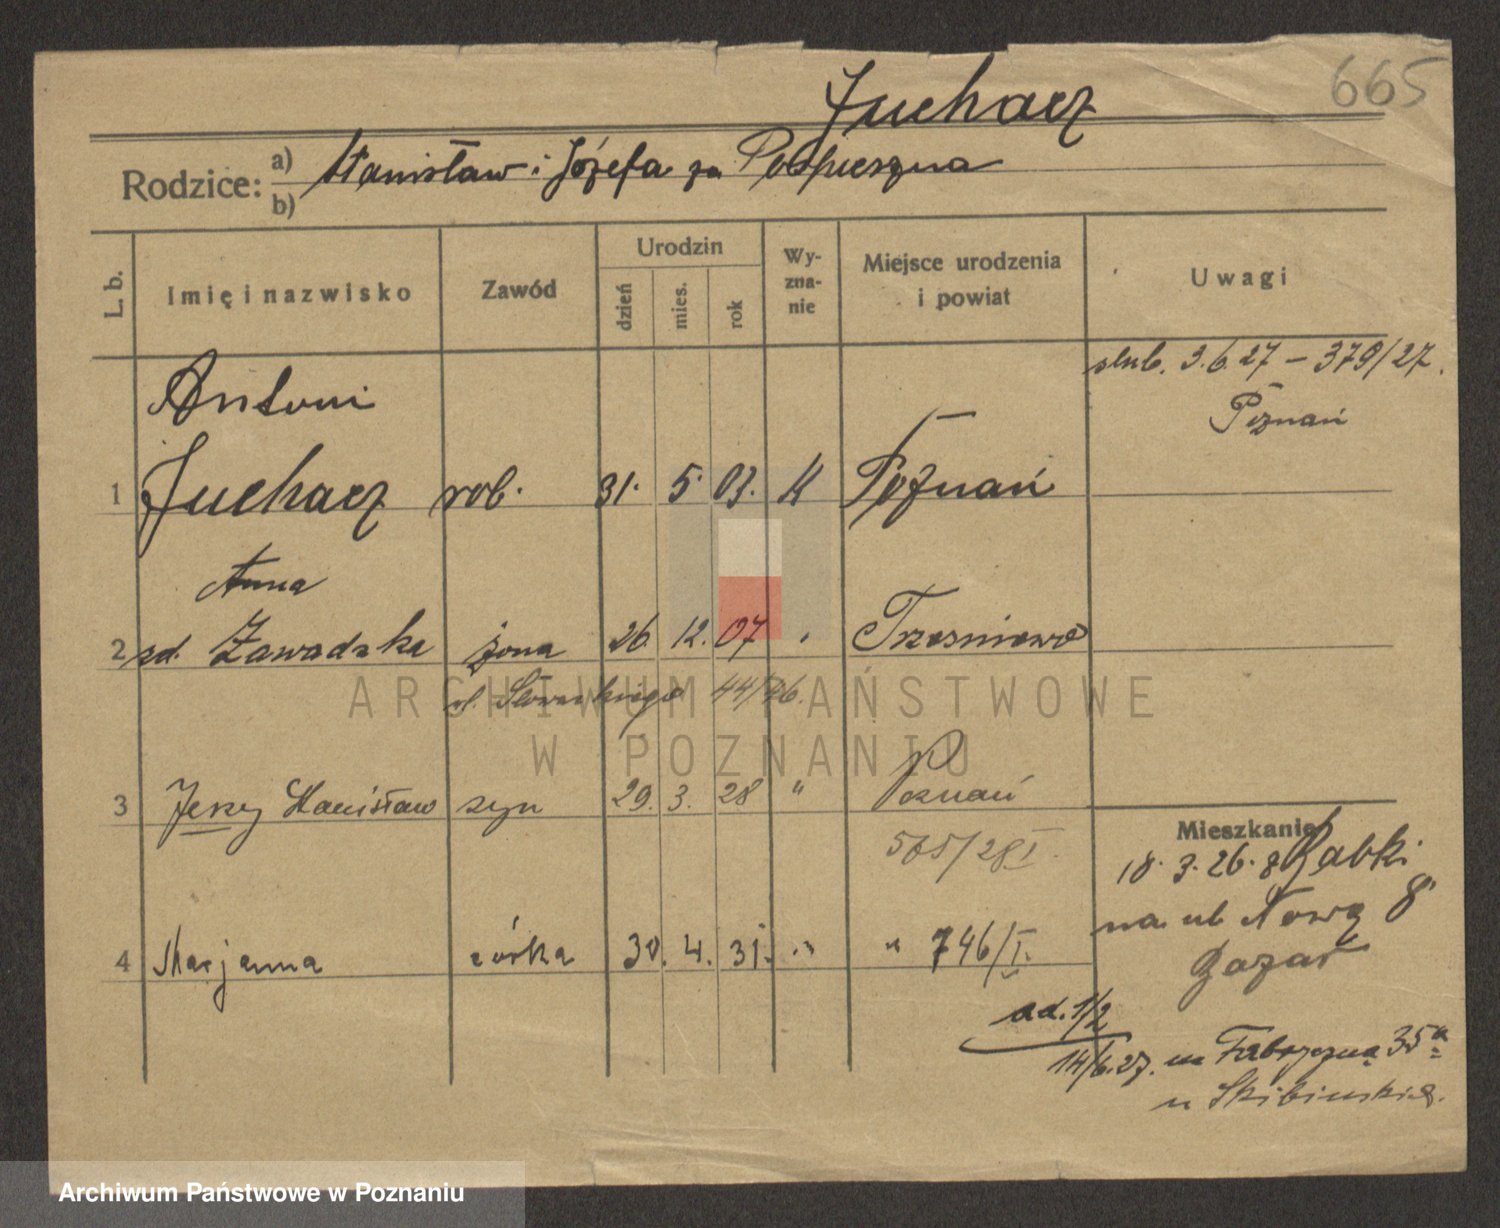 665
Juchacz
Rodzice: a) Stanisław i Józefa za Pospieszna
b)
L. b. Imię i nazwisko Zawód Urodzin dzień mies. rok Wy-zna-nie Miejsce urodzenia i powiat Uwagi
ślub. 3.6.27 – 379/27.
Poznań
Antoni
1 Juchacz rob. 31. 5. 03. K Poznań
Anna
2 zd. Zawadzka żona 26 12. 07
ul. Słowackiego 44/46.
3 Jerzy Stanisław syn 29. 3. 28 " Poznań
565/28 I.
Mieszkanie
18. 3. 26. Babki
na ul Nową 8
Bazar
4 Marjanna córka 30. 4. 31. " " 746/I.
ad. 1/2
14/6.27. na Fabryczną 35a
u Skibińskie.
ARCHIWUM PAŃSTWOWE
W POZNANIU
Archiwum Państwowe w Poznaniu